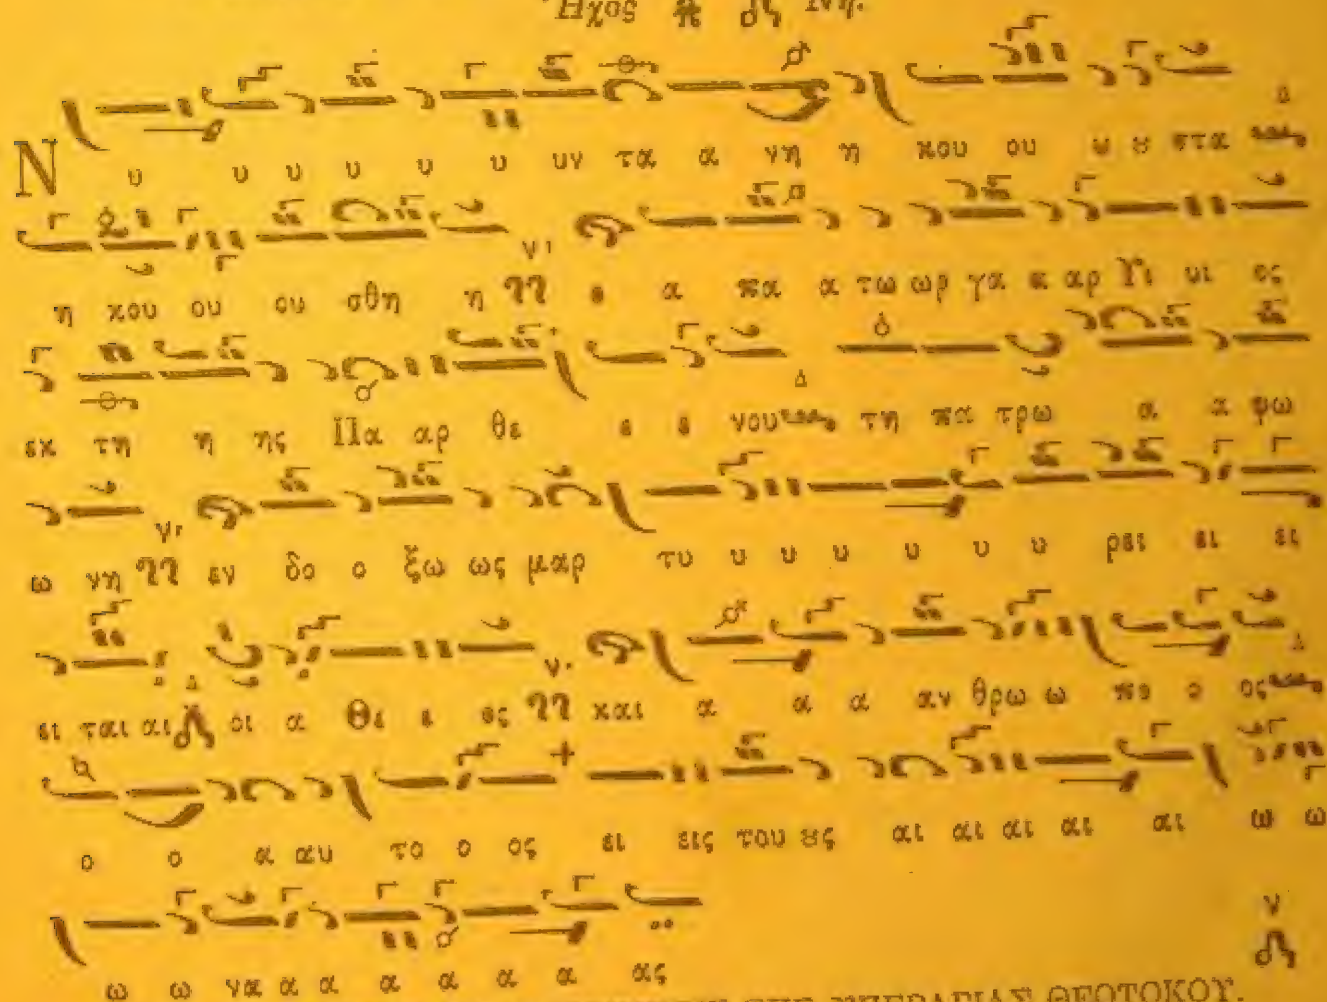 Ἦχος Νη.
Ν υ υ υ υ υ υ υν τα α νη η κου ου ω ω στα
η κου ου ου σθη η ε α πα α τω ωρ γα κ αρ Υι υι ος
εκ τη η ης Πα αρ θε ε ε νου τη πα τρω α α φω
ω νη εν δο ο ξω ως μαρ τυ υ υ υ υ υ υ ρει ει ει
ει ται αι οι α Θε ε ος και α α α αν θρω ω πο ο ος
ο ο α αυ το ο ος ει εις του ȣς αι αι αι αι αι ω ω
ω ω να α α α α α α ας
ΘΕΟΤΟΚΟΥ.